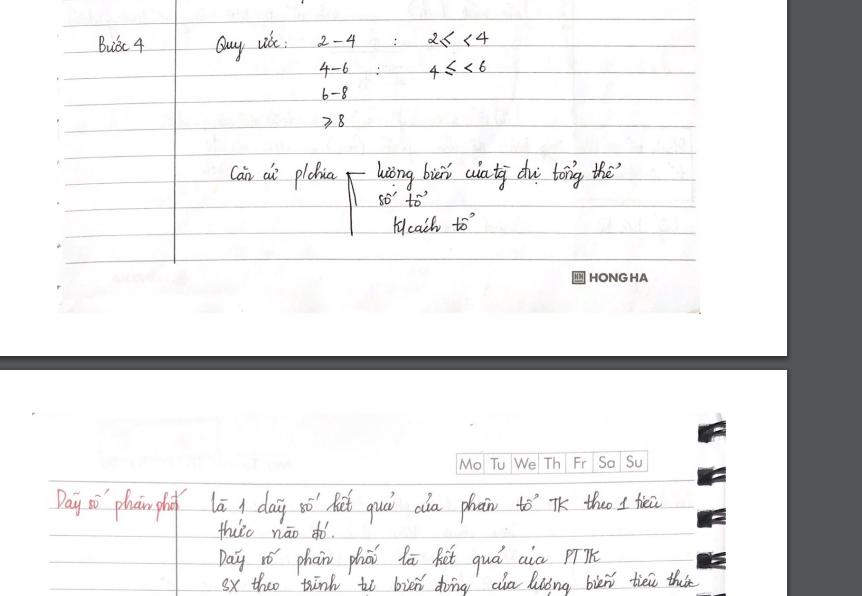 Bước 4 Quy ước: 2-4 : 2≤ <4
4-6 : 4≤ <6
6-8
≥8
Căn cứ p/chia lượng biến của tg đvị tổng thể
số tổ
k/cách tổ
HH HONG HA
Mo Tu We Th Fr Sa Su
Dãy số phân phối là 1 dãy số kết quả của phân tổ TK theo 1 tiêu
thức nào đó.
Dãy số phân phối là kết quả của PTTK
SX theo trình tự biến động của lượng biến tiêu thức